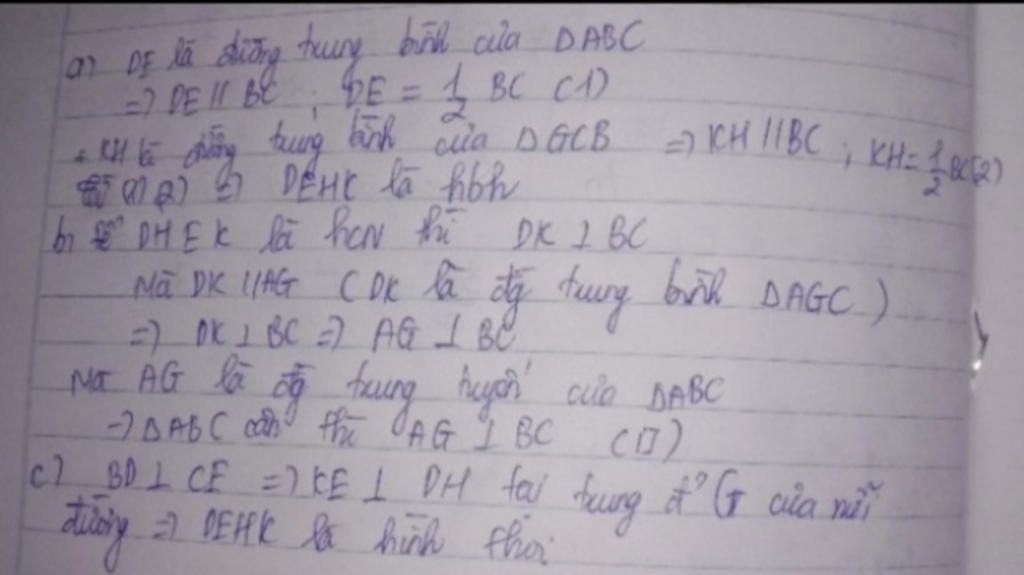 a) DE là đường trung bình của ΔABC
=> DE // BC ; DE = 1/2 BC (1)
+ KH là đường trung bình của ΔGCB => KH // BC ; KH = 1/2 BC (2)
(1) (2) => DEHK là hbh
b) Để DHEK là hcn thì DK ⊥ BC
Mà DK // AG (DK là đg trung bình ΔAGC)
=> DK ⊥ BC => AG ⊥ BC
Mà AG là đg trung tuyến của ΔABC
-> ΔABC cân thì AG ⊥ BC
c) BD ⊥ CE => KE ⊥ DH tại trung đ' G của mỗi
đường => DEHK là hình thoi